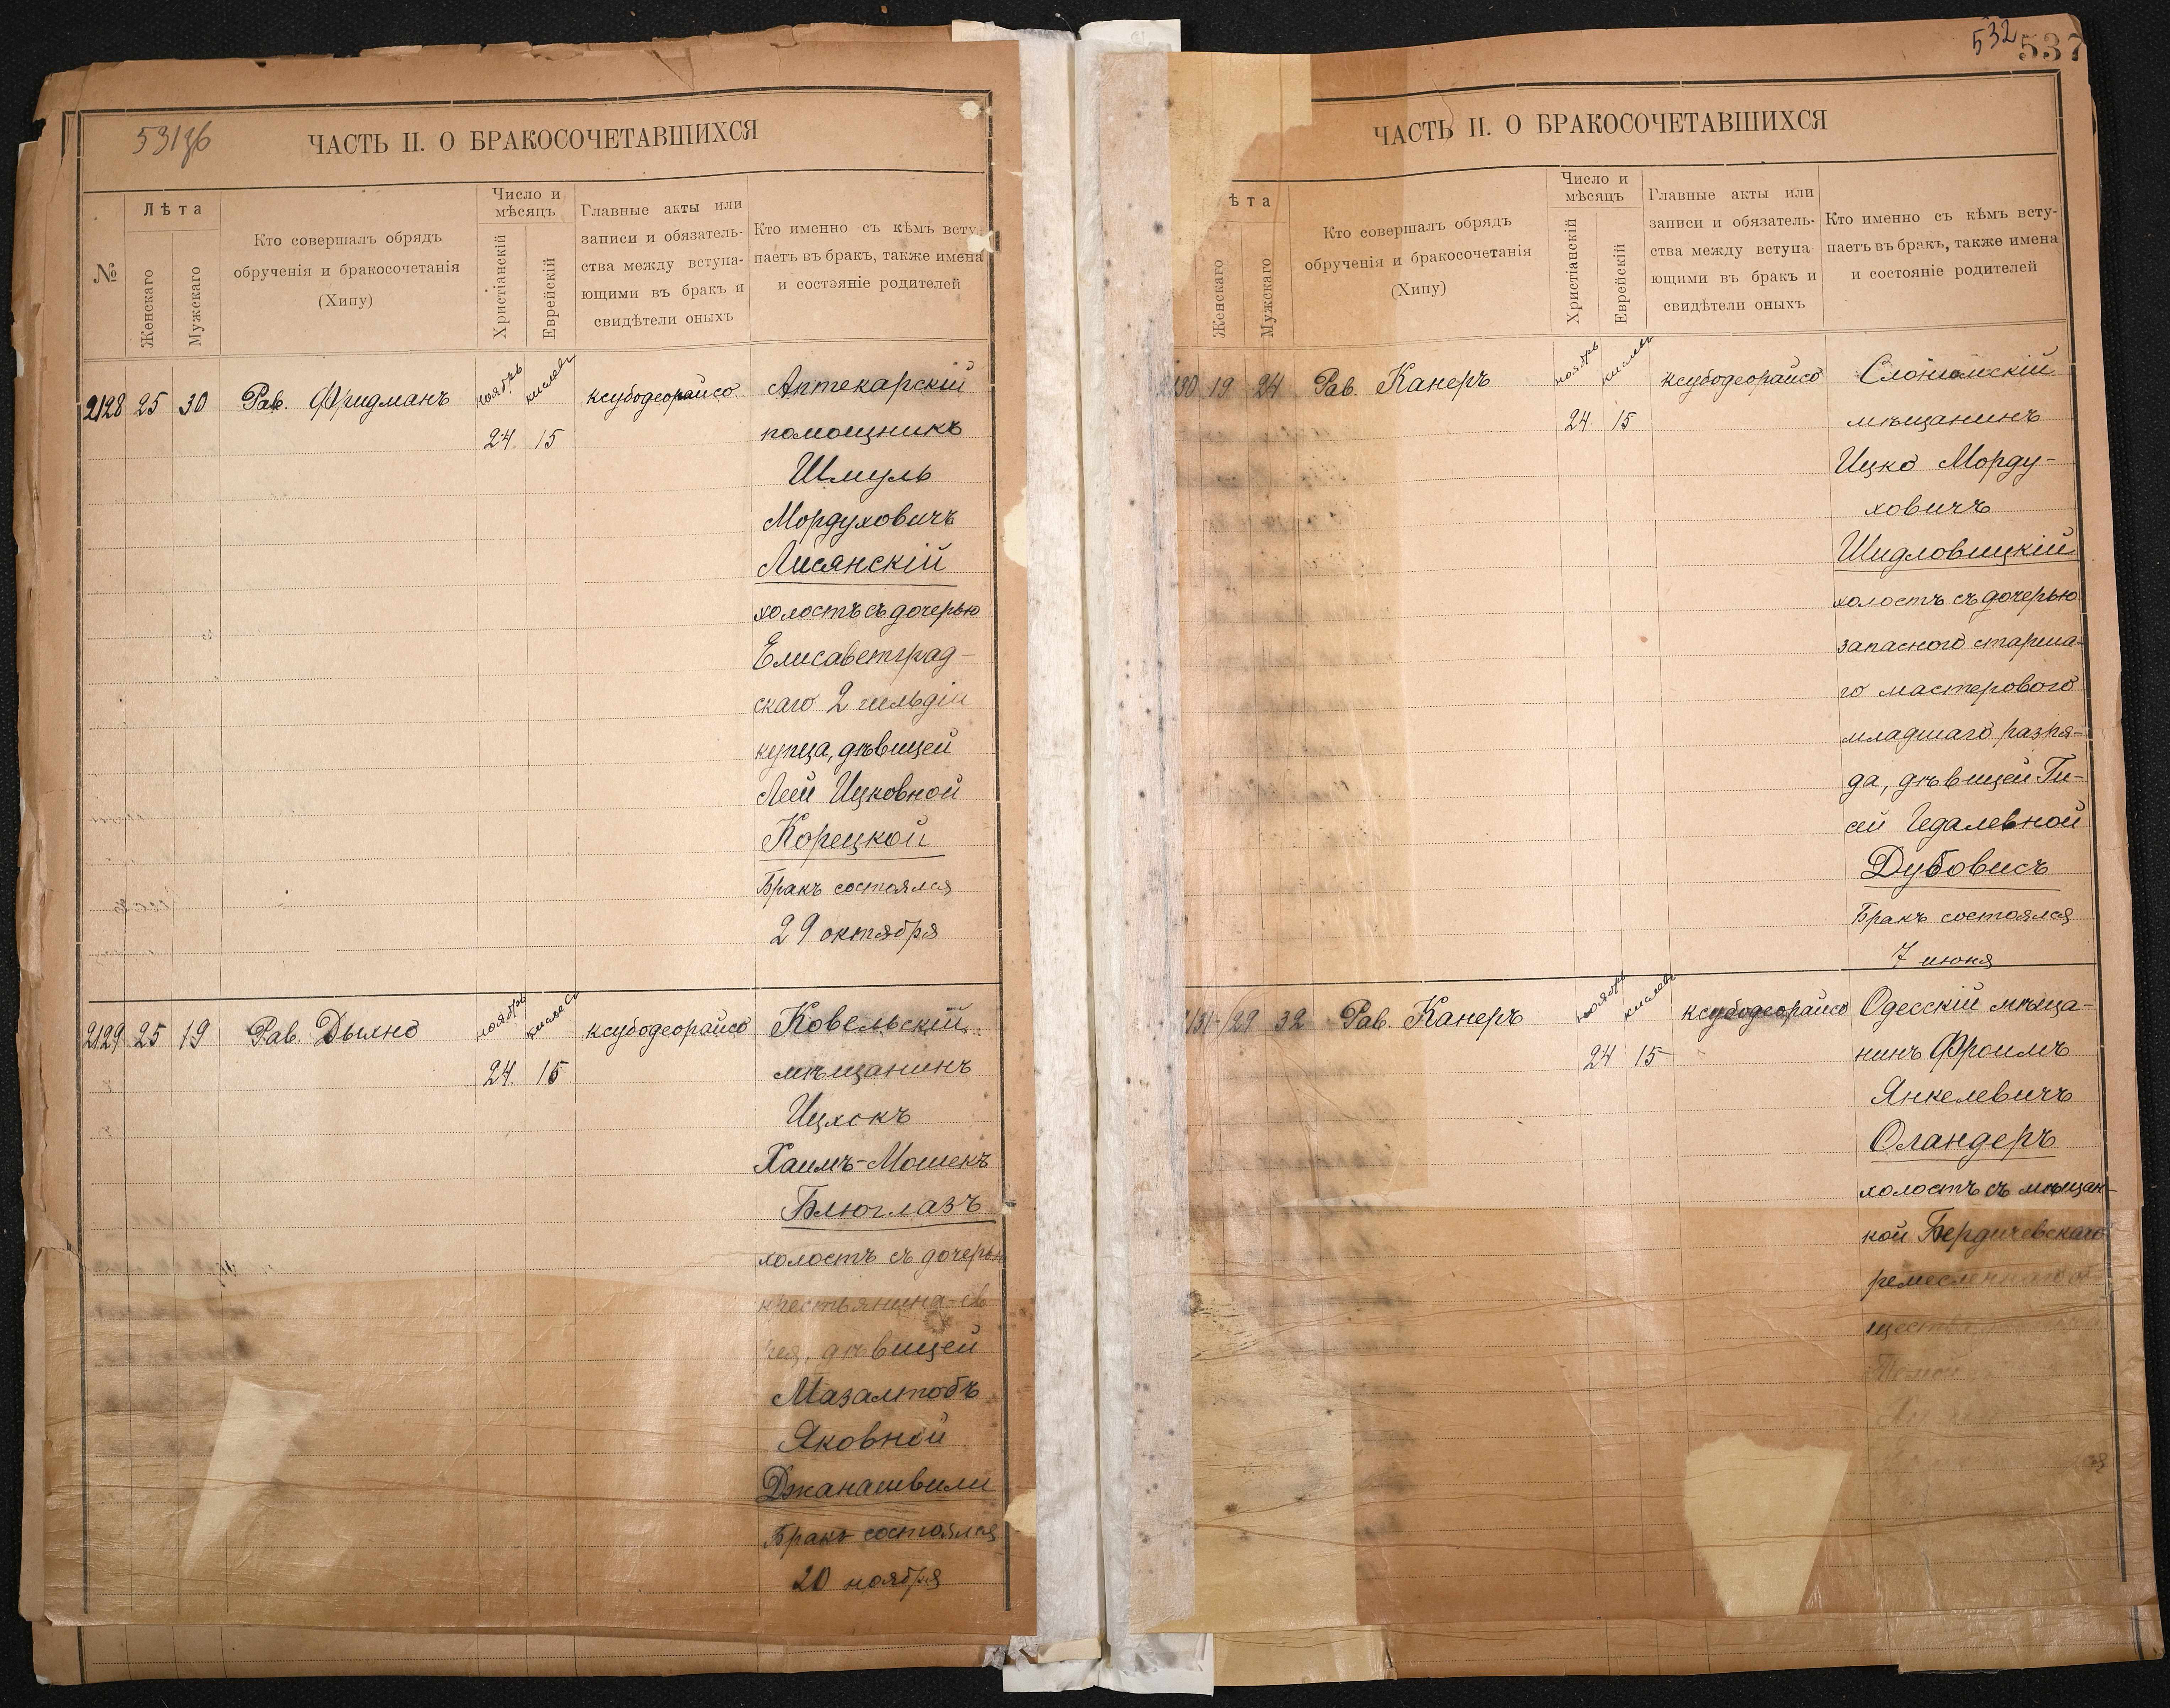 531 об
ЧАСТЬ II. О БРАКОСОЧЕТАВШИХСЯ
№
Лѣта
Женскаго
Мужскаго
Кто совершалъ обрядъ
обрученія и бракосочетанія
(Хипу)
Число и
мѣсяцъ
Христіанскій
Еврейскій
Главные акты или
записи и обязатель-
ства между вступа-
ющими въ бракъ и
свидѣтели оныхъ
Кто именно съ кѣмъ всту-
паетъ въ бракъ, также имена
и состояніе родителей
2128 25 30 Рав. Фридманъ ноябрь кислевъ ксубодеорайсо Аптекарскій
24 15 помощникъ
Шмуль
Мордуховичъ
Лисянскій
холостъ съ дочерью
Елисаветград-
скаго 2 гильдіи
купца, дѣвицей
Леей Ицковной
Корецкой
Бракъ состоялся
29 октября
2129 25 19 Рав. Дыхно ноябрь кислевъ ксубодеорайсо Ковельскій
24 15 мѣщанинъ
Ицхокъ
Хаимъ-Мошекъ
Блюглазъ
холостъ съ дочерью
крестьянина-ев
рея, дѣвицей
Мазалтобъ
Яковной
Джанашвили
Бракъ состоялся
20 ноября
532
537
ЧАСТЬ II. О БРАКОСОЧЕТАВШИХСЯ
ѣта
Женскаго
Мужскаго
Кто совершалъ обрядъ
обрученія и бракосочетанія
(Хипу)
Число и
мѣсяцъ
Христіанскій
Еврейскій
Главные акты или
записи и обязатель-
ства между вступа-
ющими въ бракъ и
свидѣтели оныхъ
Кто именно съ кѣмъ всту-
паетъ въ бракъ, также имена
и состояніе родителей
2130 19 24 Рав. Канеръ ноябрь кислевъ ксубодеорайсо Слонимскій
24 15 мѣщанинъ
Ицко Морду-
ховичъ
Шидловицкій
холостъ съ дочерью
запаснаго старша-
го мастерового
младшаго разря-
да, дѣвицей Ги-
сей Гедалевной
Дубовисъ
Бракъ состоялся
7 июня
131 29 32 Рав. Канеръ ноябрь кислевъ ксубодеорайсо Одесскій мѣща-
24 15 нинъ Фроимъ
Янкелевичъ
Оландеръ
холостъ съ мѣщан-
кой Бердичевскаго
ремесленнаго об
щества